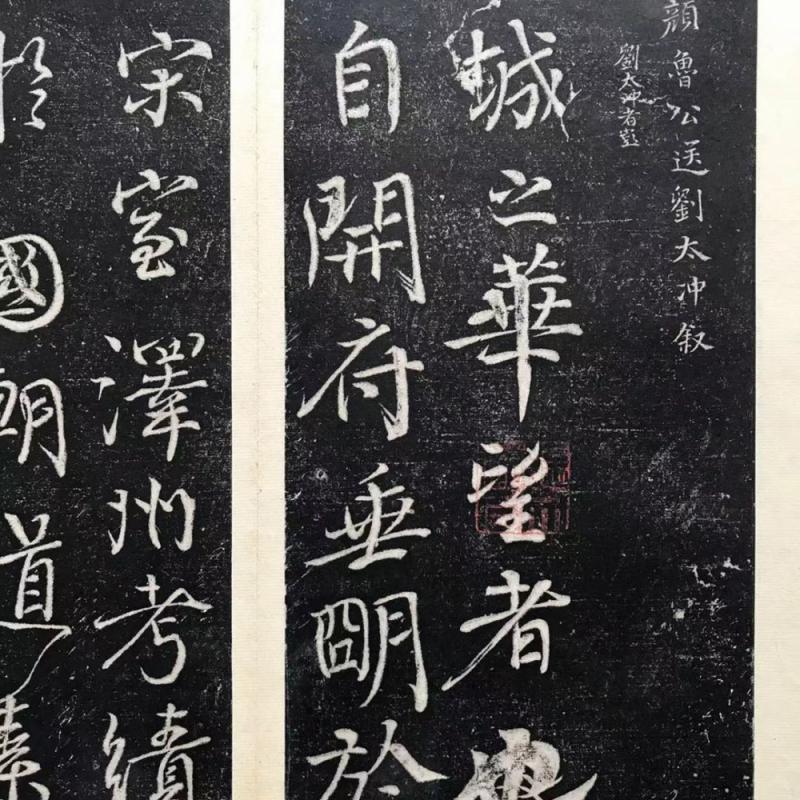 顏魯公送劉太冲叙
劉太冲者彭
城之華望者也
自開府垂明於
宋室澤州考績
於國朝道素